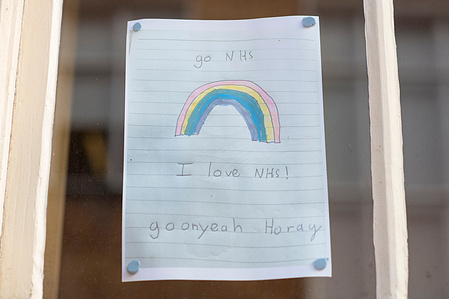 go NHS
I love NHS!
goonyeah Huray